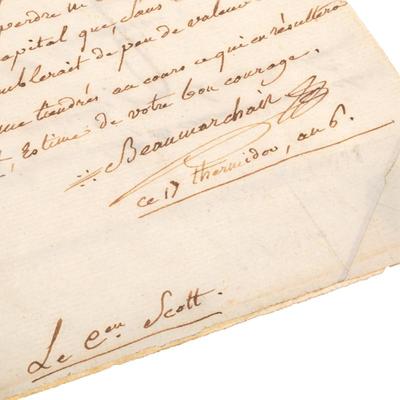 perdre
capital que, sans
semblerait de peu de valeur
me tiendrés au cours ce qui en résultera
Estime de votre bon courage,
Beaumarchais
ce 17 thermidor, an 6.
Le Cen Scott.